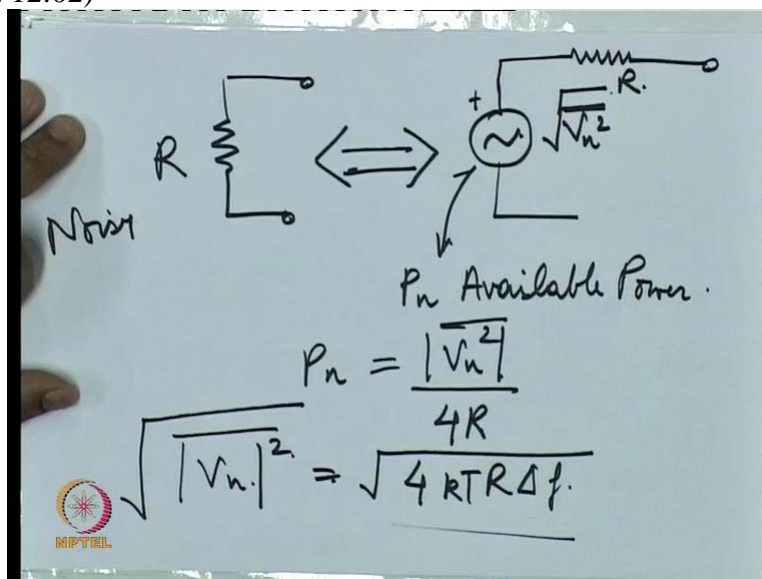 12:02)
R
Noisy
+
√V̅n²
R.
Pn Available Power.
Pn = |V̅n²| / 4R
√|Vn.|² = √4 kTR Δf.
NPTEL